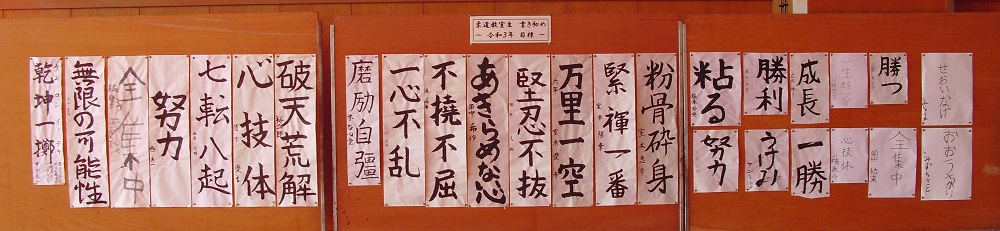 柔道教室生 書き初め
～ 令和3年 目標 ～
せおいなげ
勝つ
一生懸命
成長
勝利
粘る
おおうつがり
全集中
心技体
一勝
うけみ
努力
粉骨砕身
緊褌一番
万里一空
堅忍不抜
あきらめな心
不撓不屈
一心不乱
磨励自彊
破天荒解
心技体
七転八起
努力
全集中
無限の可能性
乾坤一擲